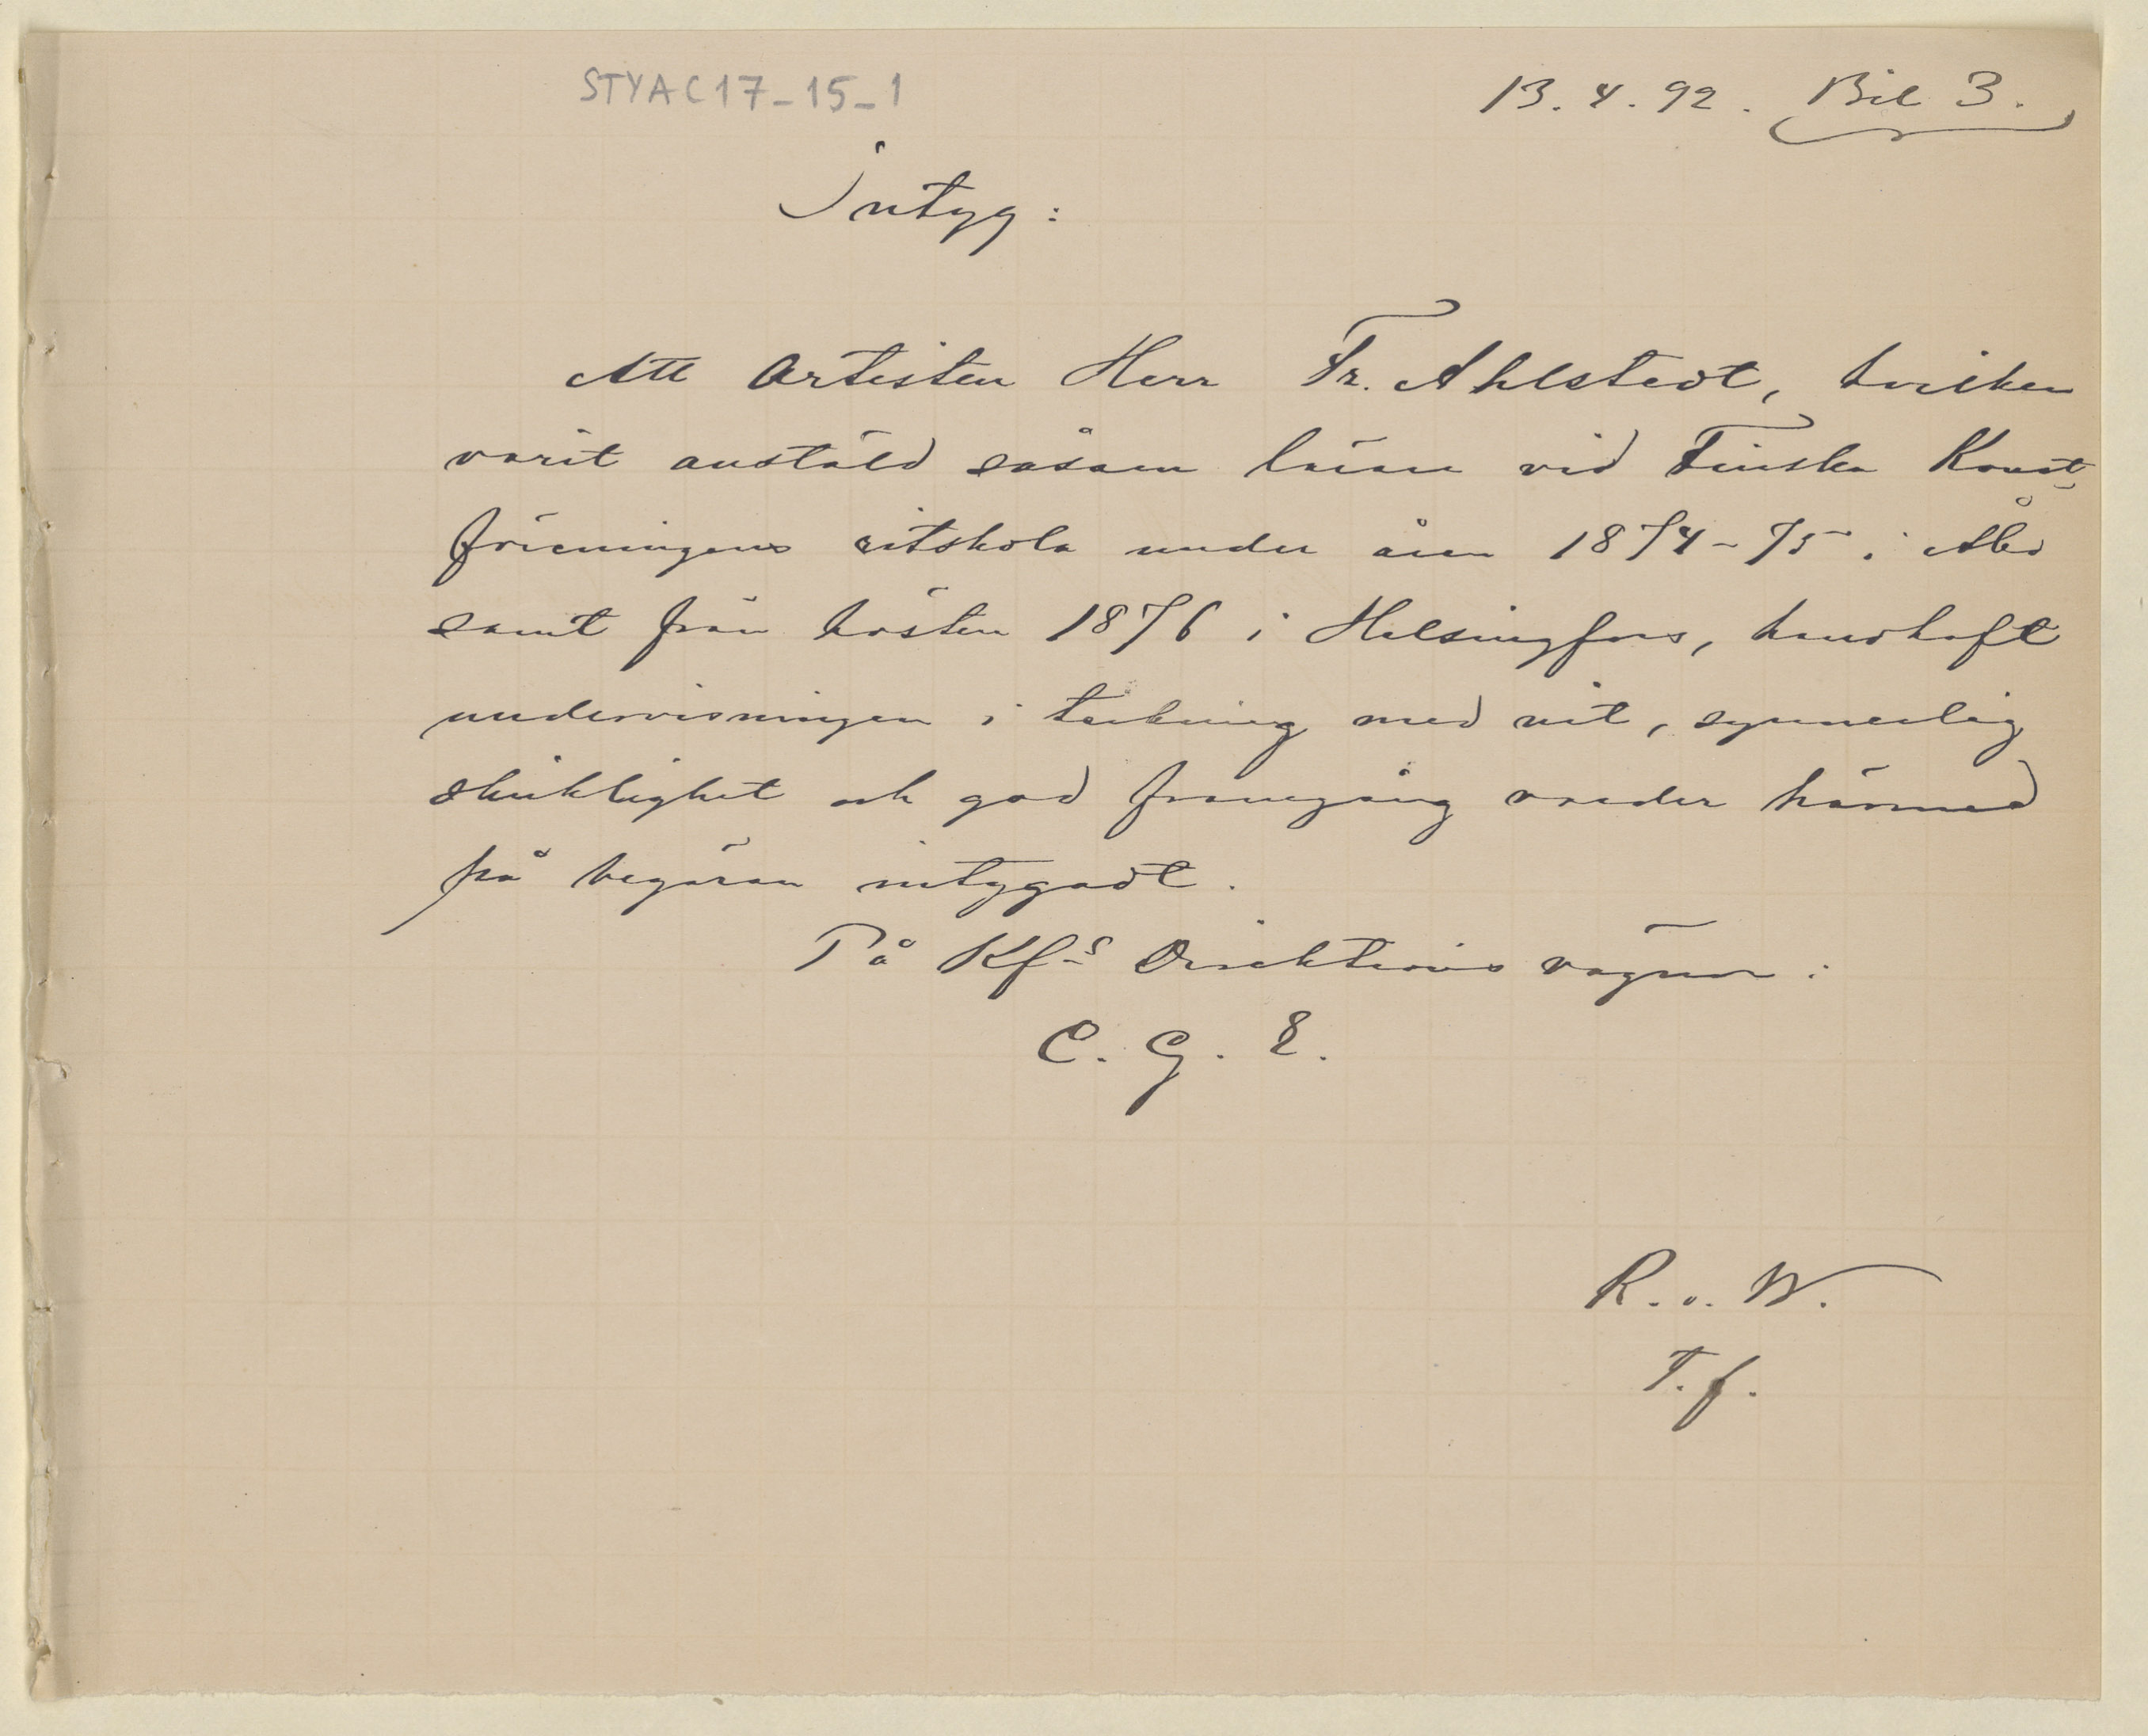 STYAC17-15-1
13.4.92. Bil 3.
Intyg:
Att Artisten Herr Fr. Ahlstedt, hvilken
varit anstäld såsom lärare vid Finska Konst-
föreningens ritskola under åren 1874-75 i Åbo
samt från hösten 1876 i Helsingfors, handhaft
undervisningen i teckning med nit, synnerlig
skicklighet och god framgång varder härmed
på begäran intygadt.
På Kfs Direktions vägnar:
C. G. E.
R. v. W.
T. f.